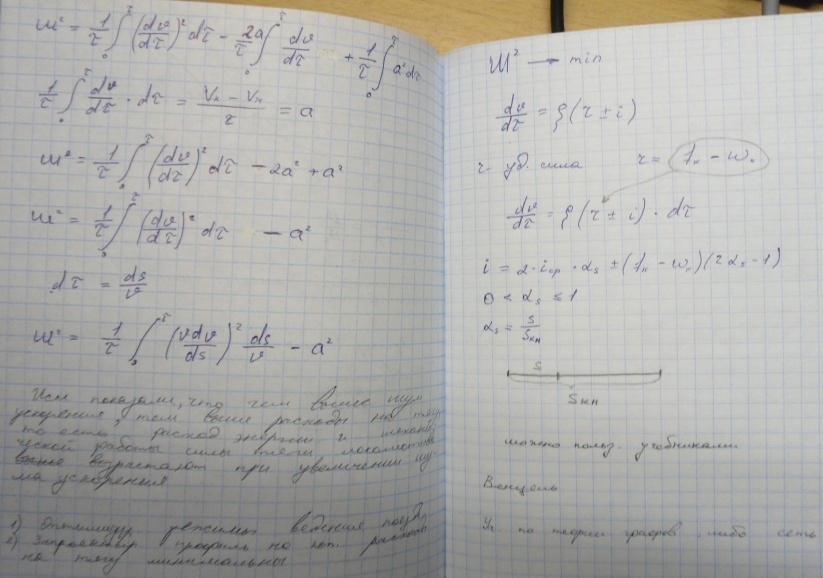 Ш² = 1/τ ∫₀^τ (dv/dτ)² dτ − 2a/τ ∫₀^τ dv/dτ + 1/τ ∫₀^τ a² dτ
1/τ ∫₀^τ dv/dτ · dτ = (Vк − Vн)/τ = a
Ш² = 1/τ ∫₀^τ (dv/dτ)² dτ − 2a² + a²
Ш² = 1/τ ∫₀^τ (dv/dτ)² dτ − a²
dτ = ds/v
Ш² = 1/τ ∫₀^τ (vdv/ds)² ds/v − a²
Исп показали, что чем выше шум
ускорения, тем выше расходы на тягу
то есть расход энергии и механи
ческой работы силы тяги локомотива
возрастают при увеличении шу-
ма ускорения
1) Оптимизир. режимы ведения поезда
2) Запроектир профиль на кот. расходы
на тягу минимальны
Ш² → min
dv/dτ = ξ(r ± i)
r - уд. сила r = fк − wо
dv/dτ = ξ(r ± i) · dτ
i = 2 · iср · αs ± (fк − wо)(2αs − 1)
0 < αs ≤ 1
αs = s/Sкн
s
Sкн
можно польз. учебниками
Венцель
Уч. по теории графов, либо сеть